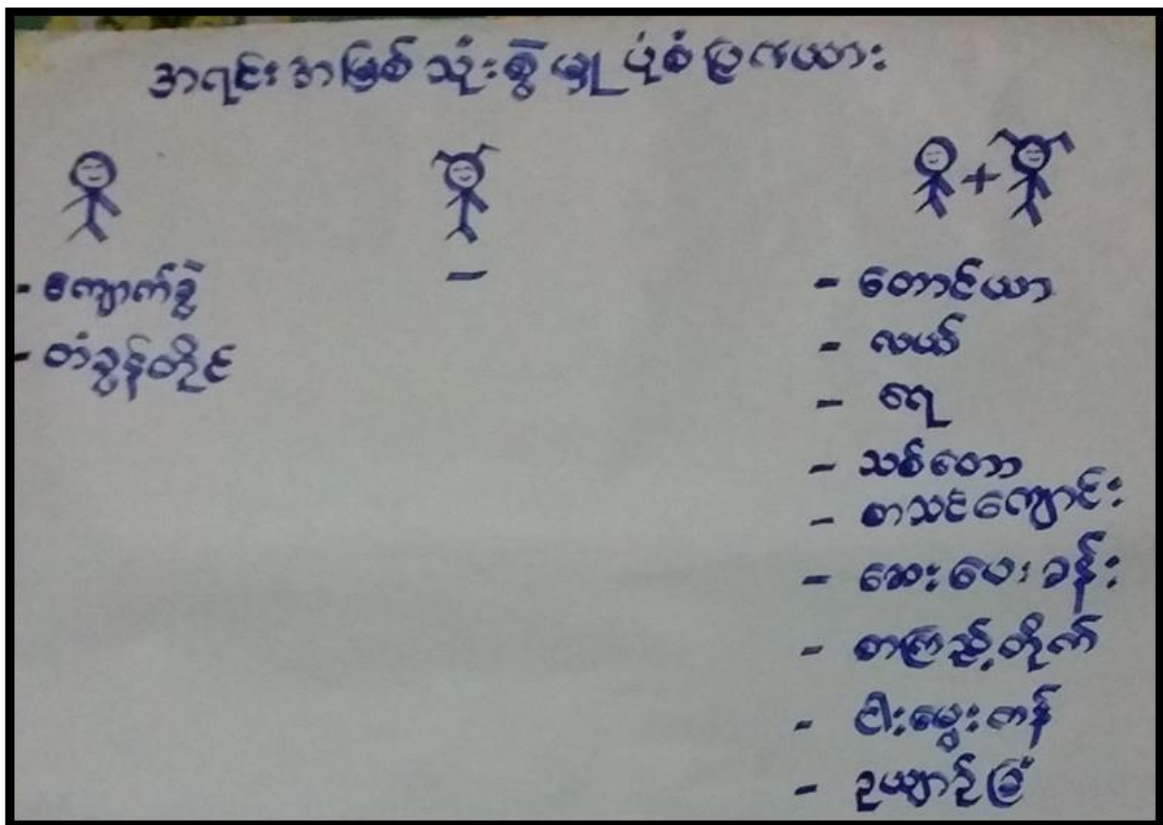 အရင်းအမြစ်သုံးစွဲမှုပုံစံပြဇယား
- ကျောက်ခွဲ
- တံခွန်တိုင်
-
- တောင်ယာ
- လယ်
- ရေ
- သစ်တော
- စာသင်ကျောင်း
- ဆေးပေးခန်း
- စာကြည့်တိုက်
- ငါးမွေးကန်
- ဥယျာဉ်ခြံ